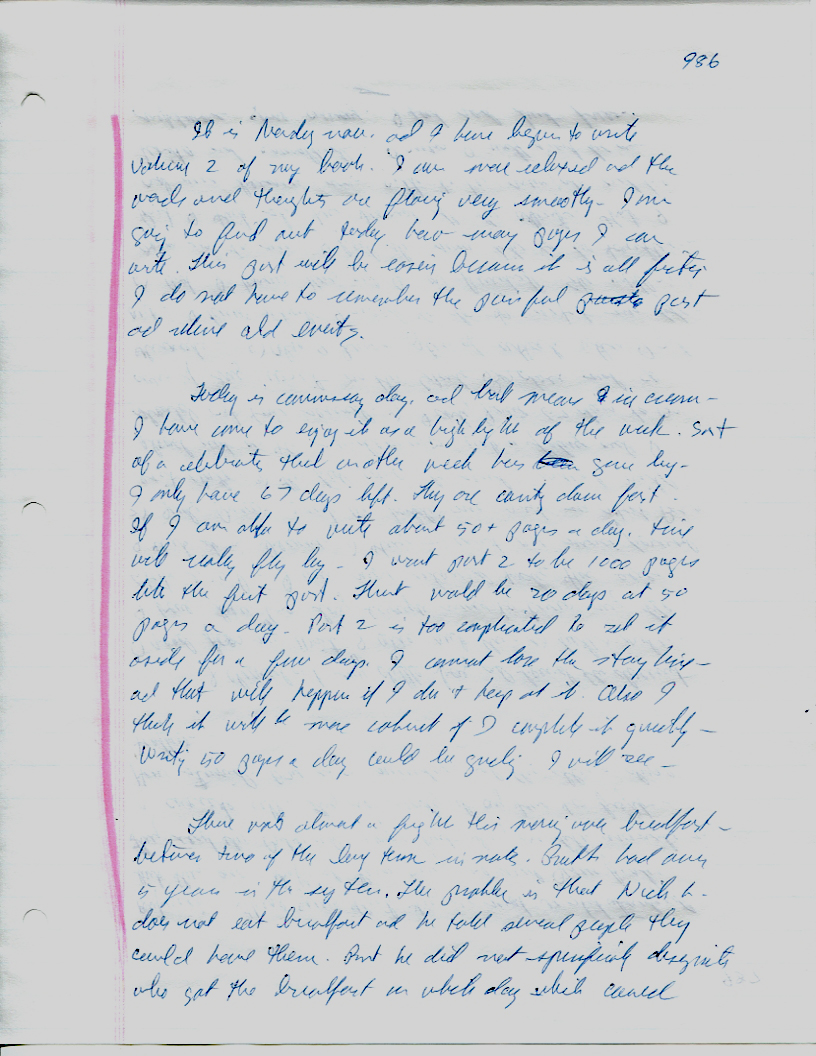 986
It is Monday now. ad I have begun to write
Volume 2 of my book. I am more relaxed ad the
words and thoughts are flowing very smoothly - I am
going to find out today how many pages I can
write. This part will be easier because it is all fiction
I do not have to remember the painful past
ad relive old events.
Today is commissary day. ad that means ice cream -
I have come to enjoy it as a highlight of the week. Sort
of a celebrate that another week has gone by -
I only have 67 days left. They are counting down fast.
If I am able to write about 50+ pages a day. time
will really fly by - I want part 2 to be 1000 pages
like the first part. That would be 20 days at 50
pages a day. Part 2 is too complicated to set it
aside for a few days. I cannot lose the story line -
ad that will happen if I don't keep at it. Also I
think it will be more coherent if I complete it quickly -
Writing 50 pages a day could be grueling. I will see -
There was almost a fight this morning over breakfast -
between two of the long term inmates. Both had over
15 years in the system. The problem is that Nick
does not eat breakfast ad he told several people they
could have them. But he did not specifically designate
who got the breakfast on which day which caused